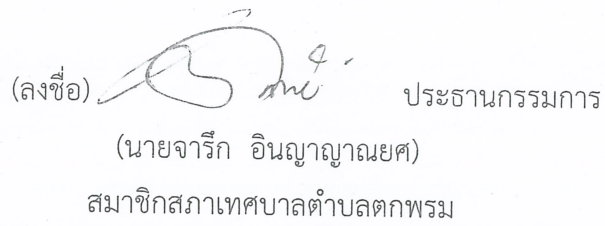 (ลงชื่อ) ประธานกรรมการ
(นายจารึก อินญาญาณยศ)
สมาชิกสภาเทศบาลตำบลตกพรม